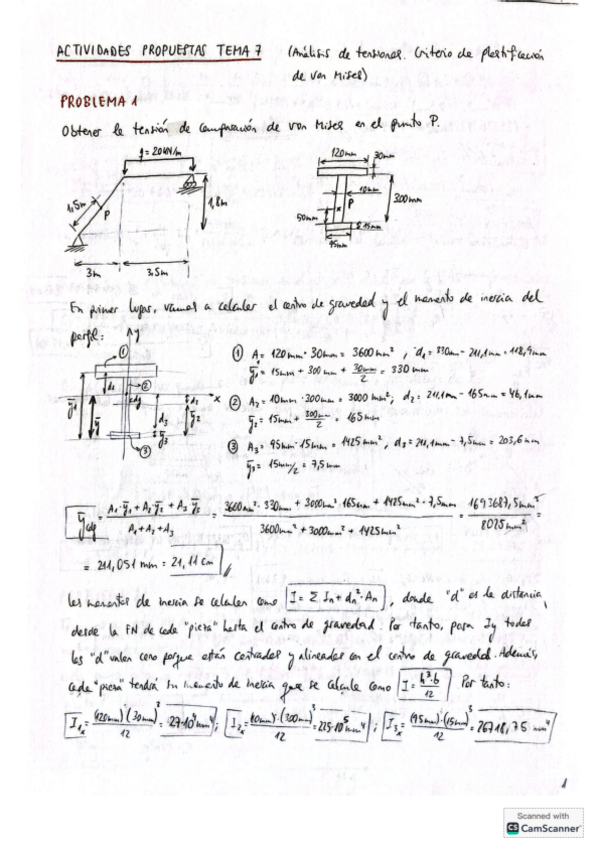 ACTIVIDADES PROPUESTAS TEMA 7 (Análisis de tensiones. Criterio de plastificación
de von Mises)
PROBLEMA 1
Obtener la tensión de comparación de von Mises en el punto P.
q = 20kN/m
1,5m
P
1,8m
3m
3,5m
120mm
30mm
10mm
P
300mm
50mm
15mm
95mm
En primer lugar, vamos a calcular el centro de gravedad y el momento de inercia del
perfil:
y
x
cdg
① A = 120mm · 30mm = 3600mm² , d₁ = 330mm - 211,1mm = 118,9mm
ȳ₁ = 15mm + 300mm + 30mm/2 = 330mm
② A₂ = 10mm · 300mm = 3000mm² ; d₂ = 211,1mm - 165mm = 46,1mm
ȳ₂ = 15mm + 300mm/2 = 165mm
③ A₃ = 95mm · 15mm = 1425mm² , d₃ = 211,1mm - 7,5mm = 203,6mm
ȳ₃ = 15mm/2 = 7,5mm
ȳcdg = (A₁·ȳ₁ + A₂ȳ₂ + A₃ȳ₃)/(A₁+A₂+A₃) = (3600mm²·330mm + 3000mm²·165mm + 1425mm²·7,5mm)/(3600mm² + 3000mm² + 1425mm²) = 1693687,5mm³/8025mm²
= 211,051mm = 21,11cm
Los momentos de inercia se calculan como I = Σ In + dn²·An , donde "d" es la distancia
desde la FN de cada "pieza" hasta el centro de gravedad. Por tanto, para Iy todas
las "d" valen cero porque están centradas y alineadas con el centro de gravedad. Además,
cada "pieza" tendrá su momento de inercia que se calcula como I = h³·b/12 Por tanto:
I₁ₓ = (120mm)·(30mm)³/12 = 27·10⁴mm⁴ ; I₂ₓ = (10mm)·(300mm)³/12 = 225·10⁵mm⁴ ; I₃ₓ = (95mm)·(15mm)³/12 = 26718,75mm⁴
1
Scanned with
CS CamScanner